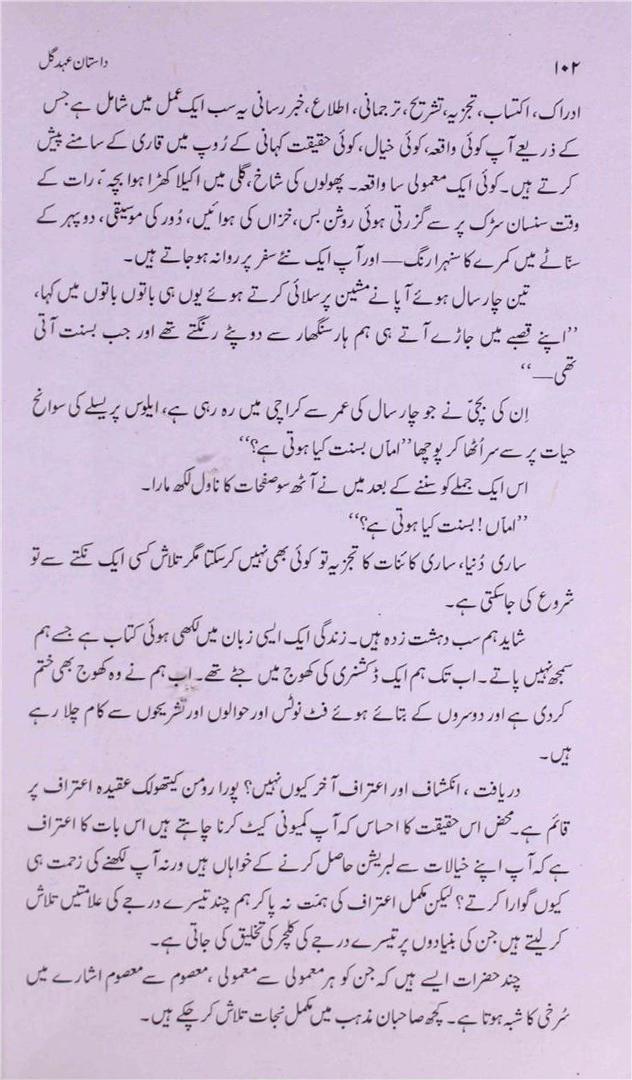 ۱۰۲ داستان عہد گل
ادراک، اکتساب، تجزیہ، تشریح، ترجمانی، اطلاع، خبر رسانی یہ سب ایک عمل میں شامل ہے جس
کے ذریعے آپ کوئی واقعہ، کوئی خیال، کوئی حقیقت کہانی کے رُوپ میں قاری کے سامنے پیش
کرتے ہیں۔ کوئی ایک معمولی سا واقعہ۔ پھولوں کی شاخ، گلی میں اکیلا کھڑا ہوا بچہ، رات کے
وقت سنسان سڑک پر سے گزرتی ہوئی روشن بس، خزاں کی ہوائیں، دُور کی موسیقی، دوپہر کے
سنّاٹے میں کمرے کا سنہرا رنگ — اور آپ ایک نئے سفر پر روانہ ہو جاتے ہیں۔
تین چار سال ہوئے آپا نے مشین پر سلائی کرتے ہوئے یوں ہی باتوں باتوں میں کہا،
’’اپنے قصبے میں جاڑے آتے ہی ہم ہار سنگھار سے دوپٹے رنگتے تھے اور جب بسنت آتی
تھی—‘‘
اِن کی بچیّ نے جو چار سال کی عمر سے کراچی میں رہ رہی ہے، ایلوس پریسلے کی سوانح
حیات پر سے سر اُٹھا کر پوچھا ’’امّاں بسنت کیا ہوتی ہے؟‘‘
اس ایک جملے کو سننے کے بعد میں نے آٹھ سو صفحات کا ناول لکھ مارا۔
’’امّاں! بسنت کیا ہوتی ہے؟‘‘
ساری دُنیا، ساری کائنات کا تجزیہ تو کوئی بھی نہیں کر سکتا مگر تلاش کسی ایک نکتے سے تو
شروع کی جا سکتی ہے۔
شاید ہم سب دہشت زدہ ہیں۔ زندگی ایک ایسی زبان میں لکھی ہوئی کتاب ہے جسے ہم
سمجھ نہیں پاتے۔ اب تک ہم ایک ڈکشنری کی کھوج میں جٹے تھے۔ اب ہم نے وہ کھوج بھی ختم
کر دی ہے اور دوسروں کے بتائے ہوئے فٹ نوٹس اور حوالوں اور تشریحوں سے کام چلا رہے
ہیں۔
دریافت، انکشاف اور اعتراف آخر کیوں نہیں؟ پورا رومن کیتھولک عقیدہ اعتراف پر
قائم ہے۔ محض اس حقیقت کا احساس کہ آپ کمیونی کیٹ کرنا چاہتے ہیں اس بات کا اعتراف
ہے کہ آپ اپنے خیالات سے لبریشن حاصل کرنے کے خواہاں ہیں ورنہ آپ لکھنے کی زحمت ہی
کیوں گوارا کرتے؟ لیکن مکمل اعتراف کی ہمّت نہ پا کر ہم چند تیسرے درجے کی علامتیں تلاش
کر لیتے ہیں جن کی بنیادوں پر تیسرے درجے کی کلچر کی تخلیق کی جاتی ہے۔
چند حضرات ایسے ہیں کہ جن کو ہر معمولی سے معمولی، معصوم سے معصوم اشارے میں
سُرخی کا شبہ ہوتا ہے۔ کچھ صاحبان مذہب میں مکمل نجات تلاش کر چکے ہیں۔